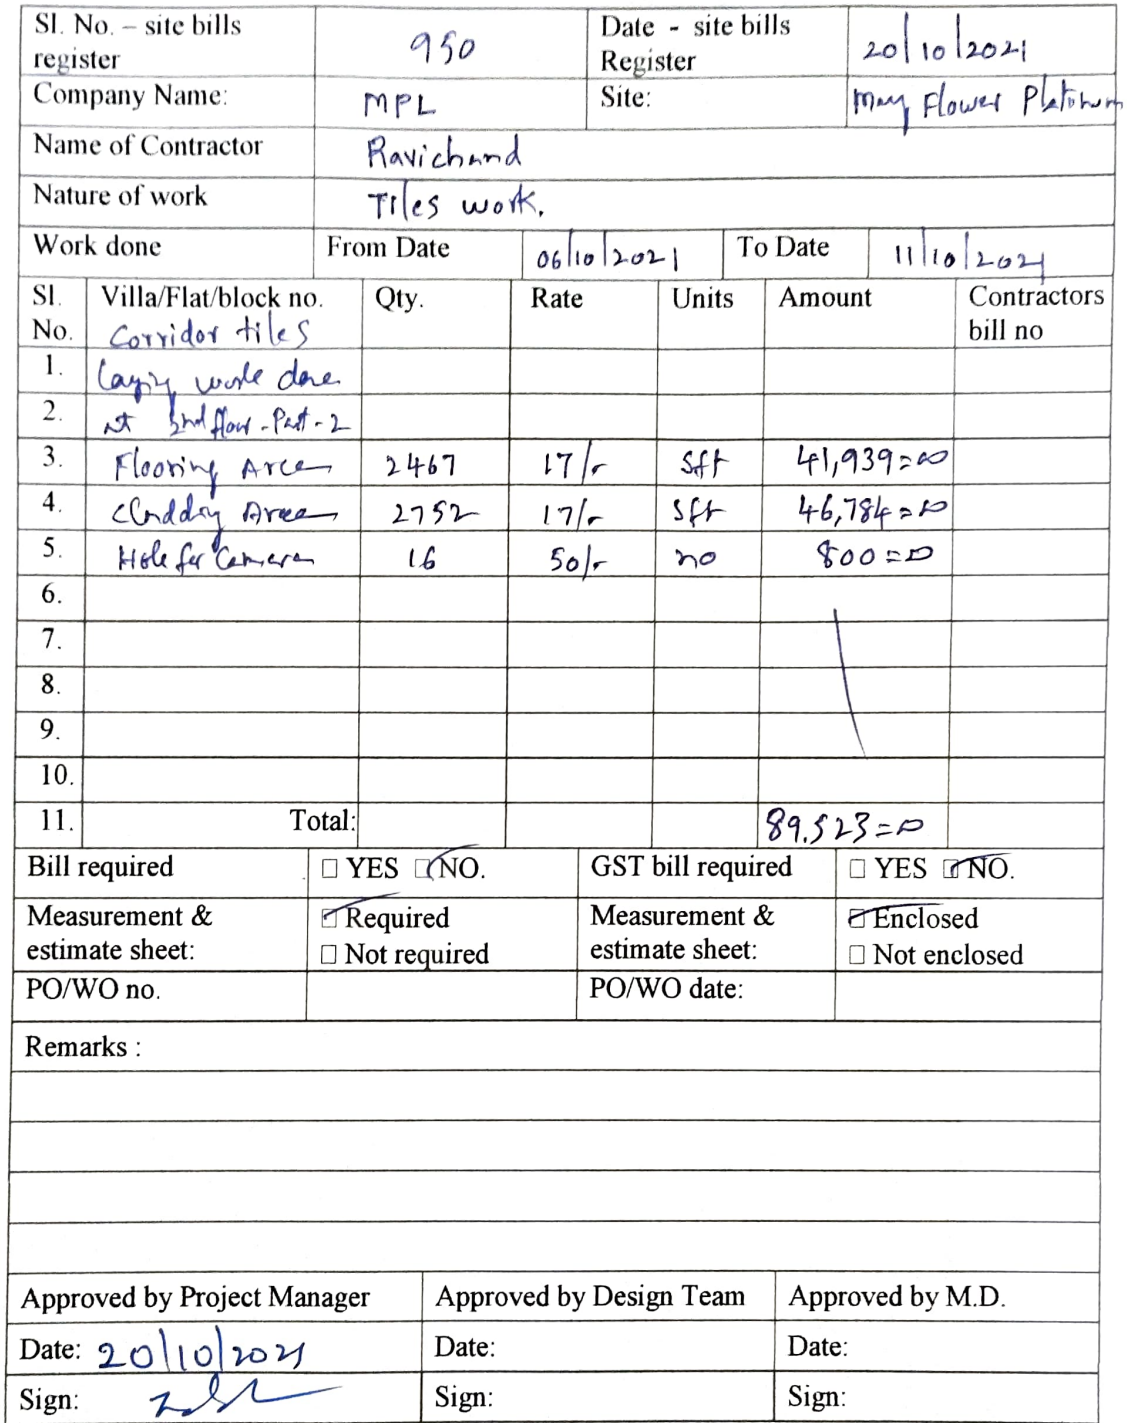 Sl. No. – site bills register 950 Date - site bills Register 20/10/2021
Company Name: MPL Site: May Flower Platinum
Name of Contractor Ravichand
Nature of work Tiles work.
Work done From Date 06/10/2021 To Date 11/10/2021
Sl. No. Villa/Flat/block no. Qty. Rate Units Amount Contractors bill no
Corridor tiles
1. laying work done
2. at 2nd floor-Part-2
3. Flooring Area 2467 17/- sft 41,939=00
4. Cladding Area 2752 17/- sft 46,784=00
5. Hole for Camera 16 50/- no 800=00
6.
7.
8.
9.
10.
11. Total: 89,523=00
Bill required □ YES □ NO. GST bill required □ YES □ NO.
Measurement & estimate sheet: □ Required □ Not required Measurement & estimate sheet: □ Enclosed □ Not enclosed
PO/WO no. PO/WO date:
Remarks :
Approved by Project Manager Approved by Design Team Approved by M.D.
Date: 20/10/2021 Date: Date:
Sign: Sign: Sign: